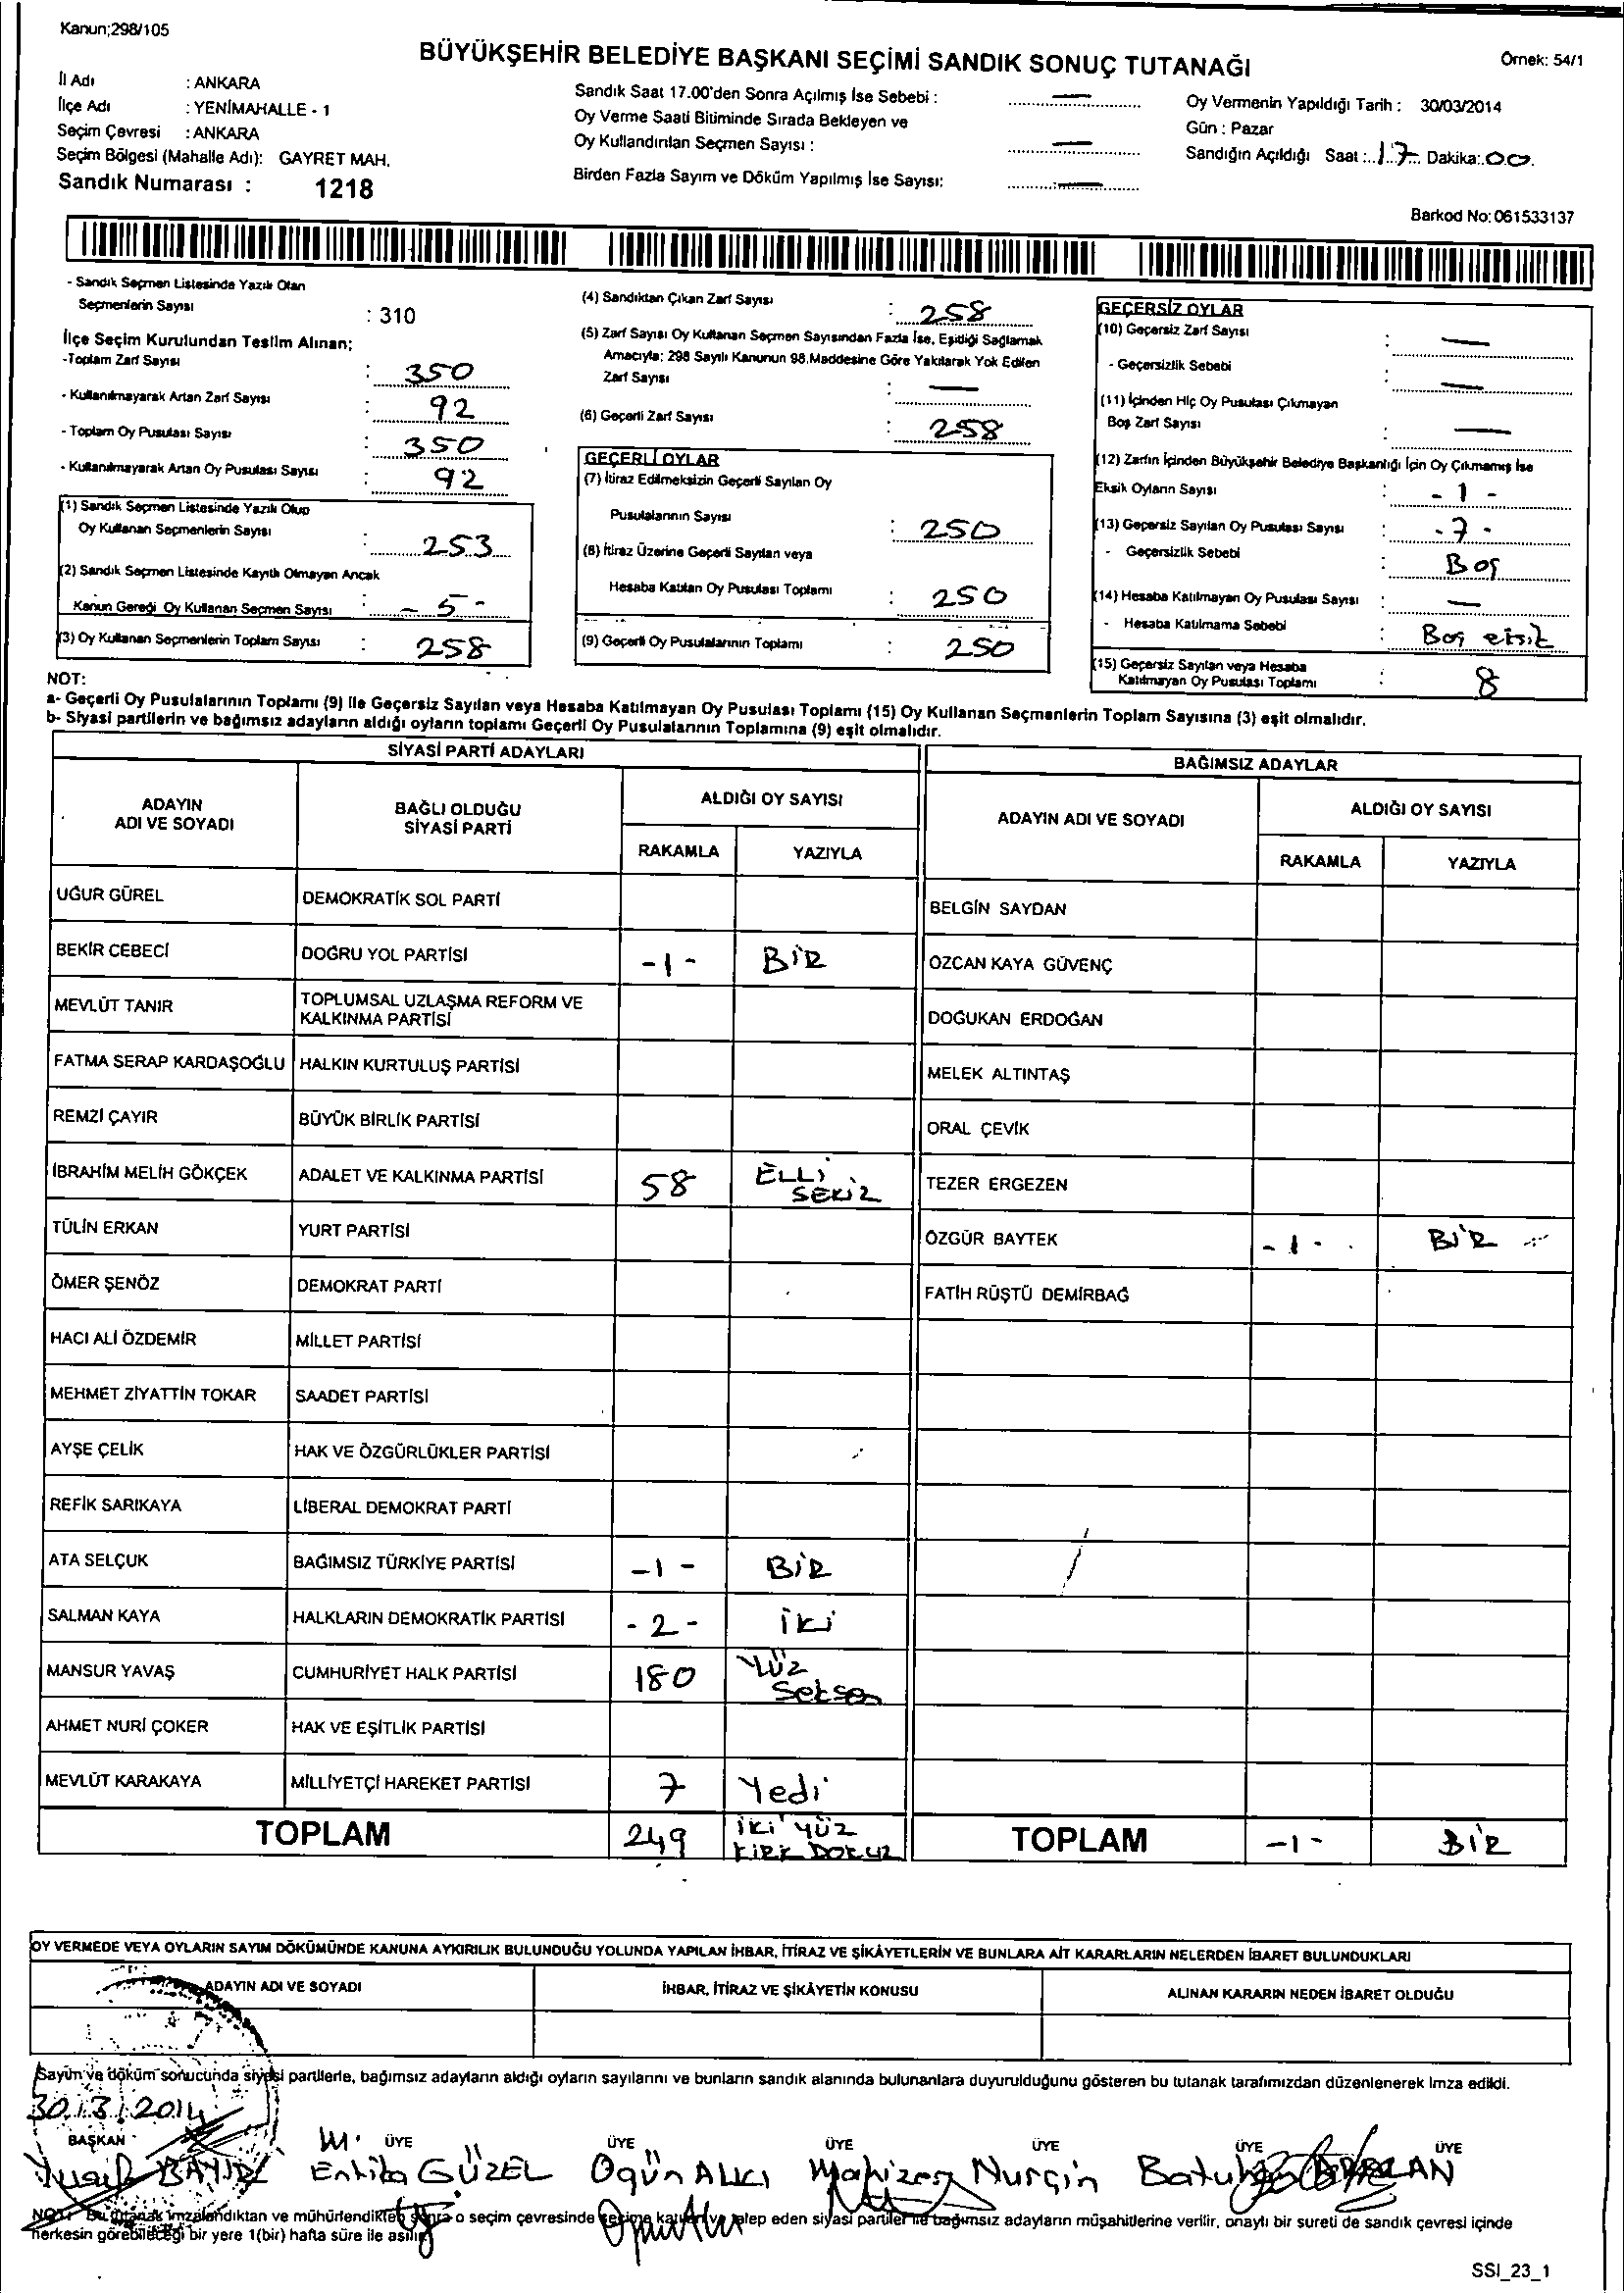 Kanun;298/105
BÜYÜKŞEHİR BELEDİYE BAŞKANI SEÇİMİ SANDIK SONUÇ TUTANAĞI
Örnek: 54/1
İl Adı : ANKARA
İlçe Adı : YENİMAHALLE - 1
Seçim Çevresi : ANKARA
Seçim Bölgesi (Mahalle Adı): GAYRET MAH.
Sandık Numarası : 1218
Sandık Saat 17.00'den Sonra Açılmış İse Sebebi : —
Oy Verme Saati Bitiminde Sırada Bekleyen ve
Oy Kullandırılan Seçmen Sayısı : —
Birden Fazla Sayım ve Döküm Yapılmış İse Sayısı: —
Oy Vermenin Yapıldığı Tarih : 30/03/2014
Gün : Pazar
Sandığın Açıldığı Saat : 17 Dakika: 00
Barkod No: 061533137
- Sandık Seçmen Listesinde Yazılı Olan
Seçmenlerin Sayısı : 310
İlçe Seçim Kurulundan Teslim Alınan;
-Toplam Zarf Sayısı : 350
- Kullanılmayarak Artan Zarf Sayısı : 92
- Toplam Oy Pusulası Sayısı : 350
- Kullanılmayarak Artan Oy Pusulası Sayısı : 92
(1) Sandık Seçmen Listesinde Yazılı Olup
Oy Kullanan Seçmenlerin Sayısı : 253
(2) Sandık Seçmen Listesinde Kayıtlı Olmayan Ancak
Kanun Gereği Oy Kullanan Seçmen Sayısı : - 5 -
(3) Oy Kullanan Seçmenlerin Toplam Sayısı : 258
(4) Sandıktan Çıkan Zarf Sayısı : 258
(5) Zarf Sayısı Oy Kullanan Seçmen Sayısından Fazla İse, Eşitliği Sağlamak
Amacıyla; 298 Sayılı Kanunun 98.Maddesine Göre Yakılarak Yok Edilen
Zarf Sayısı : —
(6) Geçerli Zarf Sayısı : 258
GEÇERLİ OYLAR
(7) İtiraz Edilmeksizin Geçerli Sayılan Oy
Pusulalarının Sayısı : 250
(8) İtiraz Üzerine Geçerli Sayılan veya
Hesaba Katılan Oy Pusulası Toplamı : 250
(9) Geçerli Oy Pusulalarının Toplamı : 250
GEÇERSİZ OYLAR
(10) Geçersiz Zarf Sayısı : —
- Geçersizlik Sebebi : —
(11) İçinden Hiç Oy Pusulası Çıkmayan
Boş Zarf Sayısı : —
(12) Zarfın İçinden Büyükşehir Belediye Başkanlığı İçin Oy Çıkmamış İse
Eksik Oyların Sayısı : - 1 -
(13) Geçersiz Sayılan Oy Pusulası Sayısı : - 7 -
- Geçersizlik Sebebi : Boş
(14) Hesaba Katılmayan Oy Pusulası Sayısı : —
- Hesaba Katılmama Sebebi : Boş eksik
(15) Geçersiz Sayılan veya Hesaba
Katılmayan Oy Pusulası Toplamı : 8
NOT:
a- Geçerli Oy Pusulalarının Toplamı (9) ile Geçersiz Sayılan veya Hesaba Katılmayan Oy Pusulası Toplamı (15) Oy Kullanan Seçmenlerin Toplam Sayısına (3) eşit olmalıdır.
b- Siyasi partilerin ve bağımsız adayların aldığı oyların toplamı Geçerli Oy Pusulalarının Toplamına (9) eşit olmalıdır.
SİYASİ PARTİ ADAYLARI
ADAYIN ADI VE SOYADI BAĞLI OLDUĞU SİYASİ PARTİ ALDIĞI OY SAYISI RAKAMLA YAZIYLA
UĞUR GÜREL DEMOKRATİK SOL PARTİ
BEKİR CEBECİ DOĞRU YOL PARTİSİ -1- BİR
MEVLÜT TANIR TOPLUMSAL UZLAŞMA REFORM VE KALKINMA PARTİSİ
FATMA SERAP KARDAŞOĞLU HALKIN KURTULUŞ PARTİSİ
REMZİ ÇAYIR BÜYÜK BİRLİK PARTİSİ
İBRAHİM MELİH GÖKÇEK ADALET VE KALKINMA PARTİSİ 58 ELLİ SEKİZ
TÜLİN ERKAN YURT PARTİSİ
ÖMER ŞENÖZ DEMOKRAT PARTİ
HACI ALİ ÖZDEMİR MİLLET PARTİSİ
MEHMET ZİYATTİN TOKAR SAADET PARTİSİ
AYŞE ÇELİK HAK VE ÖZGÜRLÜKLER PARTİSİ
REFİK SARIKAYA LİBERAL DEMOKRAT PARTİ
ATA SELÇUK BAĞIMSIZ TÜRKİYE PARTİSİ -1- BİR
SALMAN KAYA HALKLARIN DEMOKRATİK PARTİSİ -2- İKİ
MANSUR YAVAŞ CUMHURİYET HALK PARTİSİ 180 YÜZ Seksen
AHMET NURİ ÇOKER HAK VE EŞİTLİK PARTİSİ
MEVLÜT KARAKAYA MİLLİYETÇİ HAREKET PARTİSİ 7 Yedi
TOPLAM 249 İKİ YÜZ KIRK DOKUZ
BAĞIMSIZ ADAYLAR
ADAYIN ADI VE SOYADI ALDIĞI OY SAYISI RAKAMLA YAZIYLA
BELGİN SAYDAN
ÖZCAN KAYA GÜVENÇ
DOĞUKAN ERDOĞAN
MELEK ALTINTAŞ
ORAL ÇEVİK
TEZER ERGEZEN
ÖZGÜR BAYTEK -1- BİR
FATİH RÜŞTÜ DEMİRBAĞ
TOPLAM -1- BİR
OY VERMEDE VEYA OYLARIN SAYIM DÖKÜMÜNDE KANUNA AYKIRILIK BULUNDUĞU YOLUNDA YAPILAN İHBAR, İTİRAZ VE ŞİKÂYETLERİN VE BUNLARA AİT KARARLARIN NELERDEN İBARET BULUNDUKLARI
ADAYIN ADI VE SOYADI İHBAR, İTİRAZ VE ŞİKÂYETİN KONUSU ALINAN KARARIN NEDEN İBARET OLDUĞU
Sayım ve döküm sonucunda siyasi partilerle, bağımsız adayların aldığı oyların sayılarını ve bunların sandık alanında bulunanlara duyurulduğunu gösteren bu tutanak tarafımızdan düzenlenerek imza edildi.
30.13.12014
BAŞKAN ÜYE ÜYE ÜYE ÜYE ÜYE ÜYE
Yusuf GÜZEL Ogün ALICI Nurçin
NOT: Bu tutanak imzalandıktan ve mühürlendikten sonra o seçim çevresinde seçime katılan ve talep eden siyasi partiler ile bağımsız adayların müşahitlerine verilir, onaylı bir sureti de sandık çevresi içinde
herkesin görebileceği bir yere 1(bir) hafta süre ile asılır
SSI_23_1